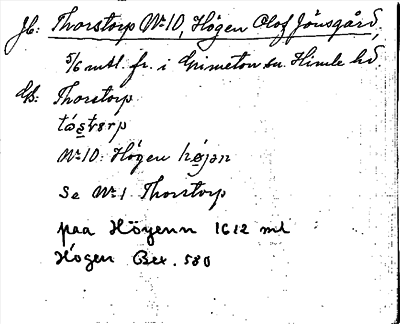 Jb: Thorstorp No 10, Högen Olof Jönsgård,
5/6 mtl. fr. i Grimeton sn. Himle hd.
Gb: Thorstorp
tåstorp
No 10: Högen högən
Se No 1 Thorstorp
paa Höyenn 1612 ml
Högen Bex. 580